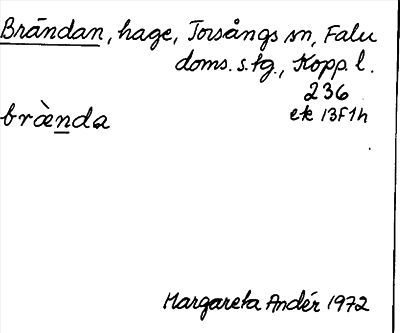 Brändan, hage, Torsångs sn, Falu
doms. s.tg., Kopp. l.
236
ek 13F1h
brὰnda
Margareta Andér 1972